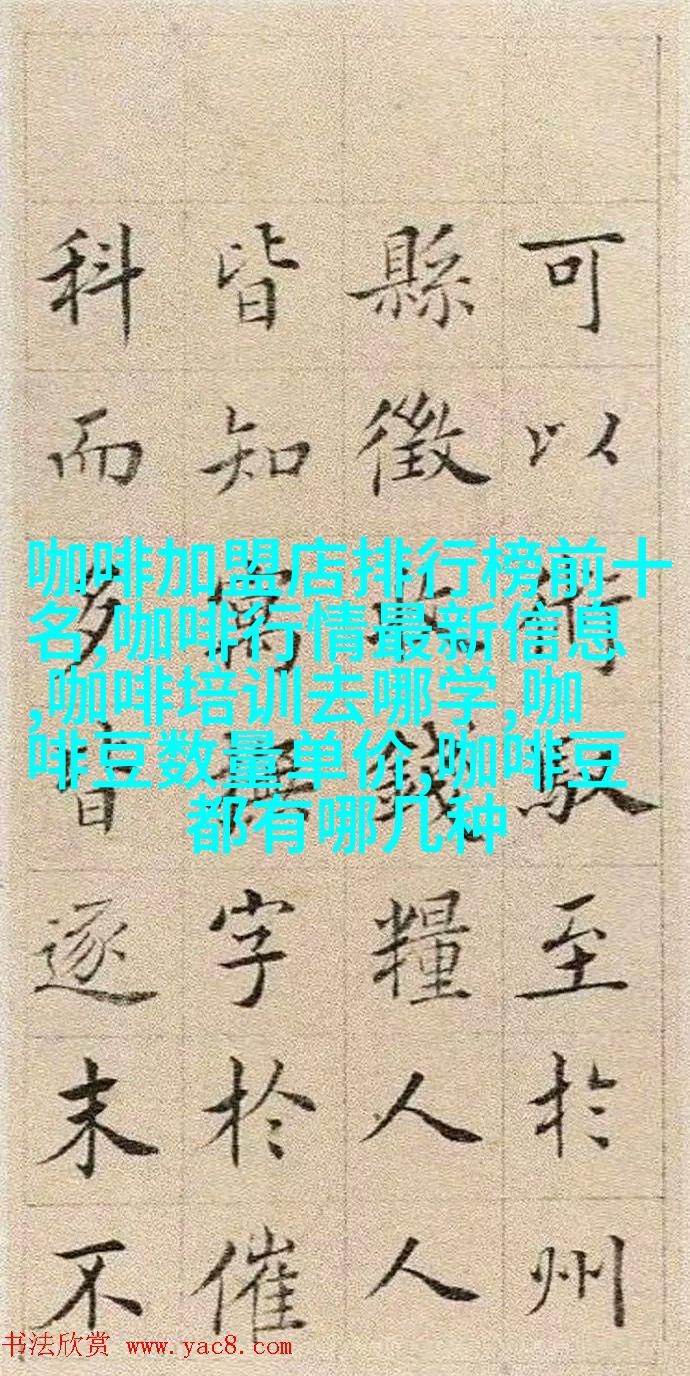 可以術馭至於州
縣徵收錢糧人人
皆知寓撫字於催
科而多逐末不
咖啡加盟店排行榜前十
名,咖啡行情最新信息
,咖啡培训去哪学,咖
啡豆数量单价,咖啡豆
都有哪几种
书法欣赏 www.yac8.com